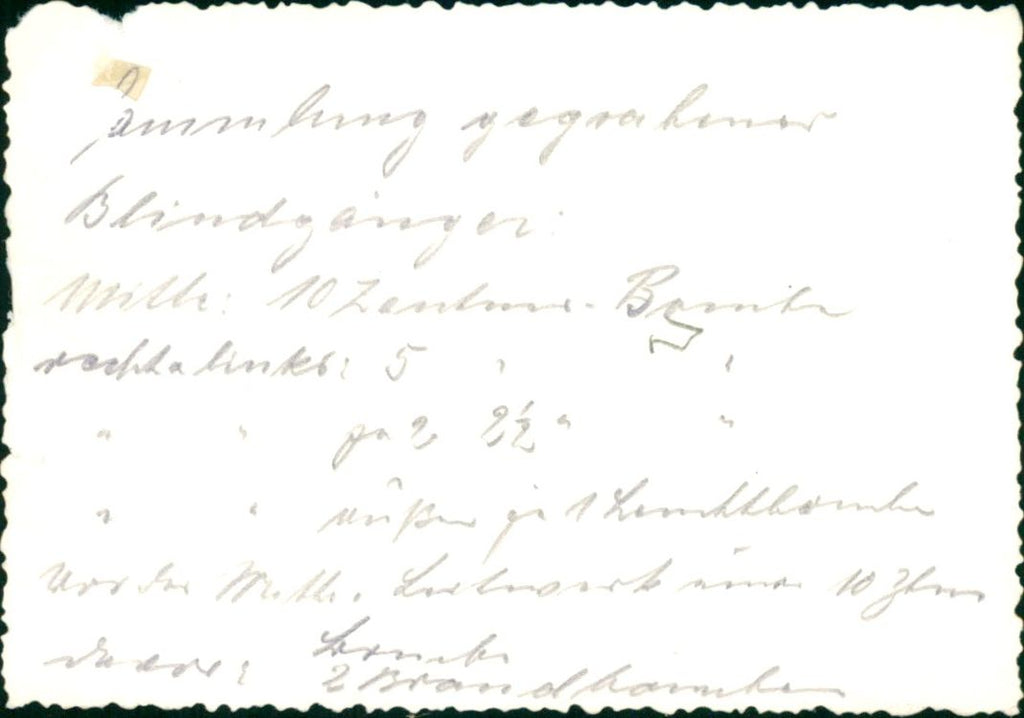 Sammlung gegrabener
Blindgänger:
Mitte: 10 Zentner-Bombe
rechts links: 5 " "
" " je 2 2½ " "
" " außen je 1 Leuchtbombe
Vor der Mitte: Leitwerk einer 10 Ztner
Bombe
davor: 2 Brandbomben